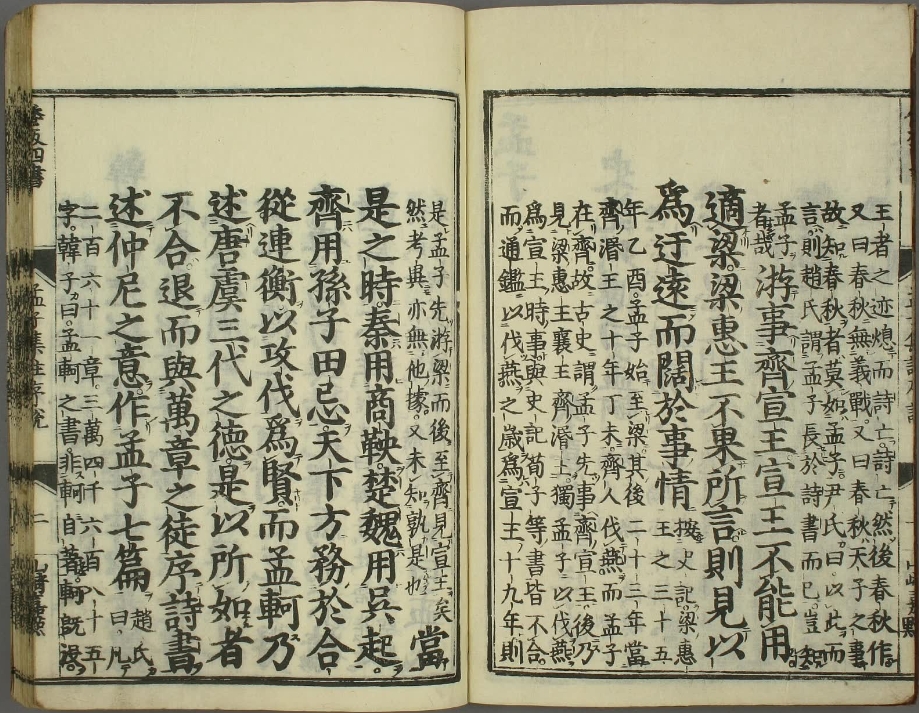 王者之迹熄而詩亡詩亡然後春秋作
又曰春秋無義戰又曰春秋天子之事
故知春秋者莫如孟子尹氏曰以此而
言則趙氏謂孟子長於詩書而已豈知
孟子者哉游事齊宣王宣王不能用
適梁梁惠王不果所言則見以
爲迂遠而闊於事情按史記梁惠王之三十五
年乙酉孟子始至梁其後二十三年當
齊湣王之十年丁未齊人伐燕而孟子
在齊故古史謂孟子先事齊宣王後乃
見梁惠王襄王齊湣王獨孟子以伐燕
爲宣王時事與史記荀子等書皆不合
而通鑑以伐燕之歳爲宣王十九年則
是孟子先游梁而後至齊見宣王矣
然考異亦無他據又未知孰是也當
是之時秦用商鞅楚魏用吳起
齊用孫子田忌天下方務於合
從連衡以攻伐爲賢而孟軻乃
述唐虞三代之徳是以所如者
不合退而與萬章之徒序詩書
述仲尼之意作孟子七篇趙氏曰凡
二百六十一章三萬四千六百八十五
字韓子曰孟軻之書非軻自著軻既没
孟子集註序説
二